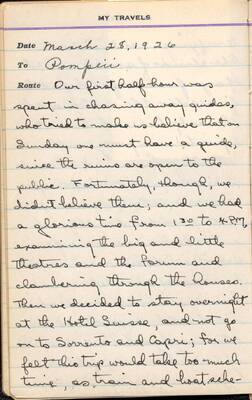 MY TRAVELS
Date March 28, 1926
To Pompeii
Route Our first half hour was
spent in chasing away guides,
who tried to make us believe that on
Sunday one must have a guide,
since the ruins are open to the
public. Fortunately, though, we
didn't believe them; and we had
a glorious time from 1 30 to 4 P.M.
examining the big and little
theatres and the forum and
clambering through the houses.
Then we decided to stay overnight
at the Hotel Suisse, and not go
on to Sorrento and Capri; for we
felt this trip would take too much
time, as train and boat sche-